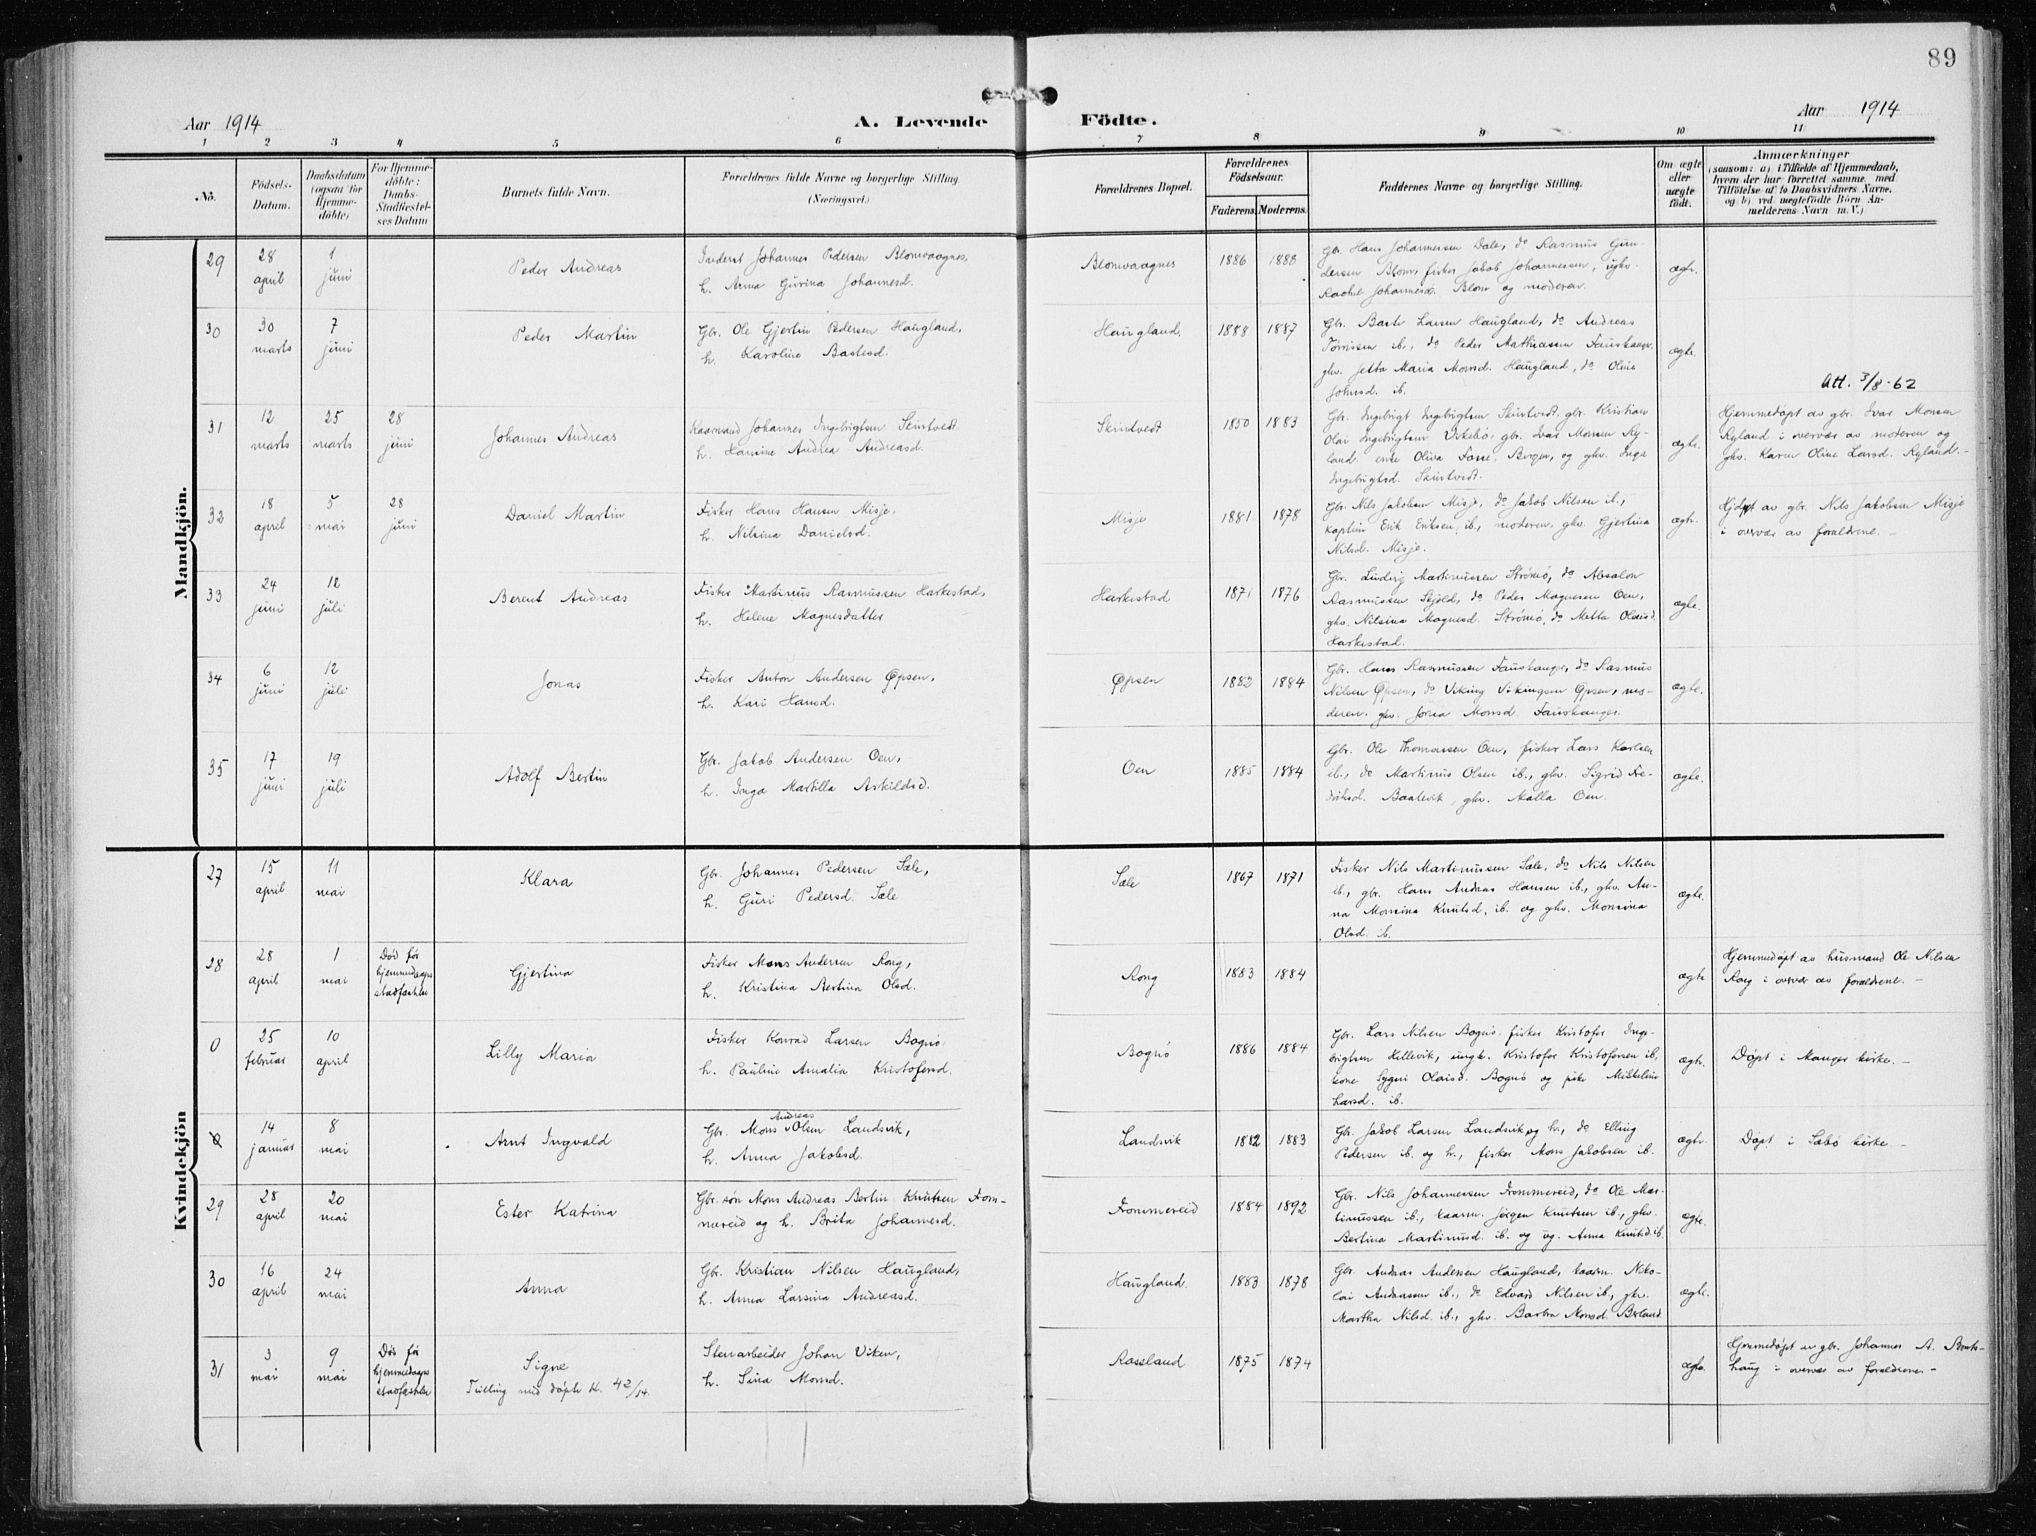 89
Aar 1914
A. Levende Födte.
Aar 1914
1 2 3 4 5 6 7 8 9 10 11
No.
Födsels-
Datum.
Daabsdatum
(ogsaa for
Hjemme-
döbte)
For Hjemme-
döbte:
Daabs-
Stadfæstel-
ses Datum
Barnets fulde Navn.
Forældrenes fulde Navne og borgerlige Stilling
(Næringsvei.)
Forældrenes Bopæl.
Forældrenes
Födselsaar.
Faderens. Moderens.
Faddernes Navne og borgerlige Stilling.
Om ægte
eller
uægte
født.
Anmærkninger
(saasom: a) i Tilfælde af Hjemmedaab,
hvem der har forrettet samme, med
Tilföielse af to Daabsvidners Navne,
og b) ved uægtefödte Börn An-
melderens Navn m. V.)
Mandkjön.
29
28
april
1
juni
Peder Andreas
Inderst Johannes Pedersen Blomvaagnes,
h. Anna Gurina Johannesd.
Blomvaagnes
1886 1888
Gbr. Hans Johannessen Dale, do Rasmus Gun-
dersen Blom, fisker Jakob Johannessen, ugkv.
Rachel Johannesd. Blom og moderen.
ægte.
30
30
marts
7
juni
Peder Martin
Gbr. Ole Gjertin Pedersen Haugland,
h. Karoline Bastesd.
Haugland.
1888 1887
Gbr. Baste Larsen Haugland, do Andreas
Tørrisen ib., do Peder Mathiassen Fauskanger,
gkv. Jetta Maria Monsd. Haugland, do Olina
Johnsd. ib.
ægte.
Att. 3/8-62
31
12
marts
25
marts
28
juni
Johannes Andreas
Kaarmand Johannes Ingebrigtsen Skintvedt
h. Hansine Andrea Andreasd.
Skintvedt
1850 1883
Gbr. Ingebrigt Ingebrigtsen Skintvedt, gbr. Kristian
Olai Ingebrigtsen Uskebø, gbr. Ivar Monsen Ry-
land, enke Oliva Fosse, Bergen, og gkv. Inga
Ingebrigtsd. Skintvedt.
ægte.
Hjemmedøpt av gbr. Ivar Monsen
Ryland i overvær av moderen og
gkv. Karen Oline Larsd. Ryland.-
32
18
april
5
mai
28
juni
Daniel Martin
Fisker Hans Hansen Misje,
h. Nilsina Danielsd.
Misje
1881 1878
Gbr. Nils Jakobsen Misje, do Jakob Nilsen ib.,
kaptein Erik Eriksen, ib., moderen, gkv. Gjertina
Nilsd. Misje.
ægte.
Hjdøpt av gbr. Nils Jakobsen Misje
i overvær av forældrene. -
33
24
juni
12
juli
Berent Andreas
Fisker Martinus Rasmussen Harkestad,
h. Helene Magnesdatter
Harkestad
1871 1876
Gbr. Ludvig Martinussen Strömö, do Absalon
Rasmussen Skjold, do Peder Magnesen Oen,
gkv. Nilsina Magnesd. Strömö, do Metta Olaisd.
Harkestad.
ægte.
34
6
juni
12
juli
Jonas
Fisker Anton Andersen Øpsen,
h. Kari Hansd.
Øpsen
1882 1884
Gbr. Hans Rasmussen Fauskanger, do Rasmus
Nilsen Øpsen, do Viking Vikingsen Øpsen, mo-
deren, gkv. Monsd. Fauskanger.
ægte.
35
17
juni
19
juli
Adolf Bertin
Gbr. Jakob Andersen Oen,
h. Inga Martilla Askildsd.
Oen
1885 1884
Gbr. Ole Thomassen Oen, fisker Lars Karlsen
ib., do Martinus Olsen ib., gkv. Sigrid Fre-
driksd. Baatevik, gkv. Malla Oen.
ægte.
Kvindekjön
27
15
april
11
mai
Klara
Gbr. Johannes Pedersen Sæle,
h. Guri Pedersd. Sæle
Sæle
1867 1871
Fisker Nils Martinussen Sæle, do Nils Nilsen
ib., gbr. Hans Andreas Hansen ib., gkv. An-
na Monsina Knutsd. ib. og gkv. Monsina
Olsd. ib.
ægte.
28
28
april
1
mai
Død før
hjemmedaaps
stadfæstelse
Gjertina
Fisker Mons Andersen Rong,
h. Kristina Bertina Olsd.
Rong
1883 1884
ægte
Hjemmedøpt av husmand Ole Nilsen
Rong i overvær av forældrene. -
0
25
februar
10
april
Lilly Maria
Fisker Konrad Larsen Bognö,
h. Pauline Amalia Kristofersd.
Bognö
1886 1884
Gbr. Lars Nilsen Bognö, fisker Kristofer Inge-
brigtsen Hellevik, ungk. Kristofer Kristofersen ib,
kone Sygni Olaisd. Bognö og pike Mikkeline
Larsd. ib.
ægte.
Døpt i Manger kirke. -
0
14
januar
8
mai
Arnt Ingvald
Andreas
Gbr. Mons Olsen Landsvik,
h. Anna Jakobsd.
Landsvik
1882 1883
Gbr. Jakob Larsen Landsvik og h., do Elling
Pedersen ib. og h., fisker Mons Jakobsen ib.
ægte.
Døpt i Sæbö kirke -
29
28
april
20
mai
Ester Katrina
Gbr. søn Mons Andreas Bertin Knutsen From-
mereid og h. Brita Johannesd.
Frommereid
1884 1892
Gbr. Nils Johannessen Frommereid, do Ole Mar-
tinussen ib., kaarm. Jörgen Knutsen ib., gkv.
Bertina Martinusd. ib. og ug. Anna Knutsd. ib.
ægte.
30
16
april
24
mai
Anna
Gbr. Kristian Nilsen Haugland,
h. Anna Larsina Andreasd.
Haugland.
1883 1878
Gbr. Andreas Andersen Haugland, kaarm. Niko-
lai Andreassen ib., do Edvard Nilsen ib., gkv.
Martha Nilsd. ib., gkv. Barbra Monsd. Berland
ægte.
31
3
mai
9
mai
Død før
hjemmedaaps
stadfæstelse
Signe
Tvilling med döpte K. 42/14.
Stenarbeider Johan Viken,
h. Sina Monsd.
Rossland
1875 1874
ægte.
Hjemmedøpt av gbr. Johannes A.
haug i overvær av forældrene -